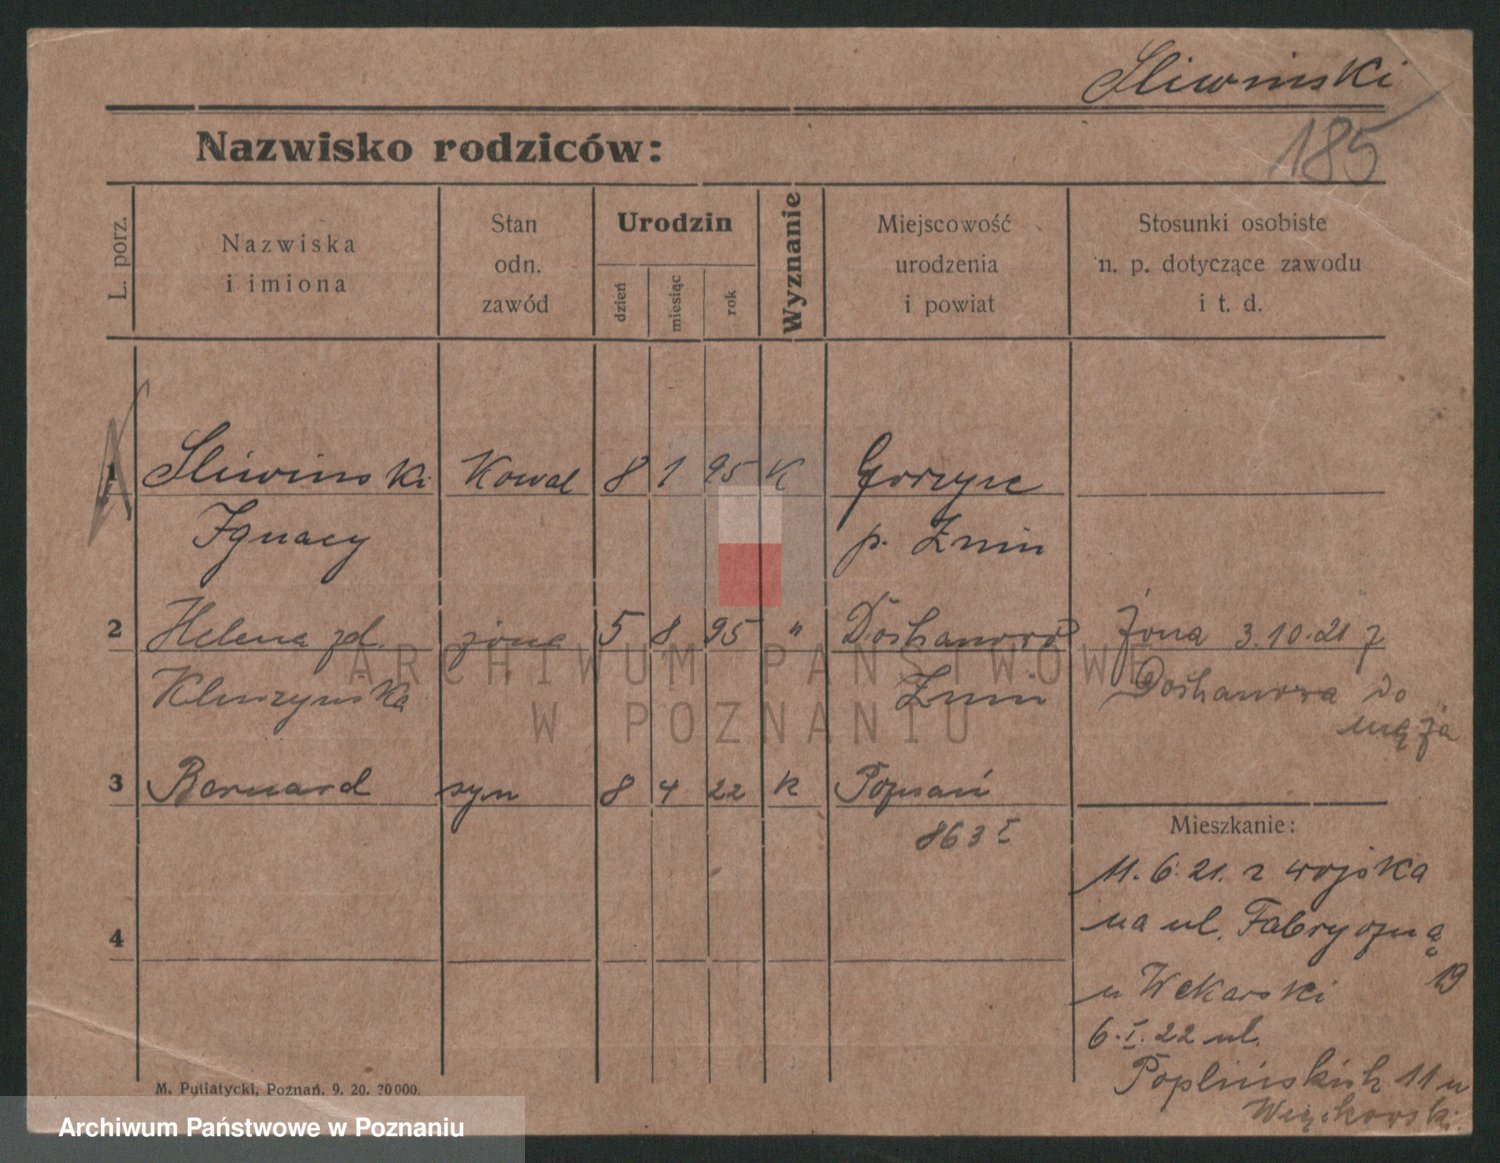 Sliwinski
185
Nazwisko rodziców:
L. porz.
Nazwiska
i imiona
Stan
odn.
zawód
Urodzin
dzień
miesiąc
rok
Wyznanie
Miejscowość
urodzenia
i powiat
Stosunki osobiste
n. p. dotyczące zawodu
i t. d.
1 Sliwinski Kowal 8 1 95 K Gorzyce
Ignacy p. Znin
2 Helena zd. żona 5 8 95 " żona 3.10.21 z
Znin do
męża
3 Bernard syn 8 4 22 k Poznań
863 I
Mieszkanie:
11.6.21. z wojska
na ul. Fabryczną
19
u Wekarski
6.I.22 ul.
Poplińskich 11 u
4
M. Putiatycki, Poznań. 9. 20. 20000.
ARCHIWUM PAŃSTWOWE
W POZNANIU
Archiwum Państwowe w Poznaniu